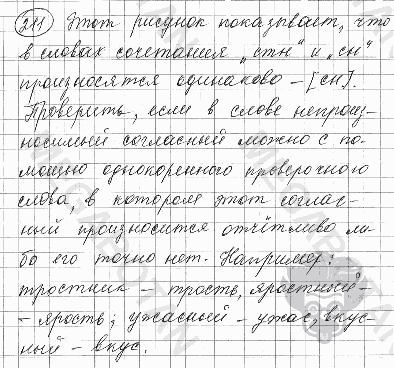 211 Этот рисунок показывает, что
в словах сочетания „стн" и „сн"
произносятся одинаково – [сн].
Проверить, если в слове непроиз-
носимый согласный можно с по-
мощью однокоренного проверочного
слова, в котором этот соглас-
ный произносится отчётливо ли-
бо его точно нет. Например:
тростник – трость, яростный –
– ярость; ужасный – ужас, вкус-
ный – вкус.
MEGABOTAN
MEGABOTAN